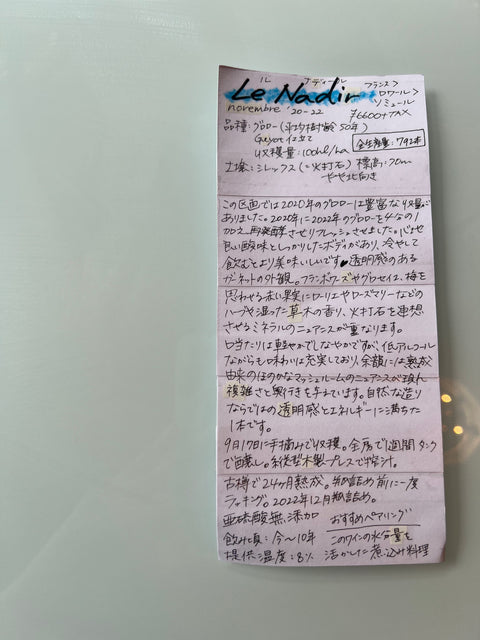 ル ナディール フランス>
Le Nadir ロワール>
novembre '20-22 ソミュール
品種:グロロー(平均樹齢50年) ¥6600+TAX
Guyot仕立て 全生産量:792本
収穫量:100hl/ha
土壌:シレックス(=火打石) 標高:70m
やや北向き
この区画では2020年のグロローは豊富な収量が
ありました。2020年に2022年のグロローを4分の1
加え、再発酵させリフレッシュさせました。
良い酸味としっかりしたボディがあり、冷やして
飲むとより美味しいです♥透明感のある
ガーネットの外観。フランボワーズやグロセイユ、梅を
思わせる赤い果実にローリエやローズマリーなどの
ハーブや湿った草木の香り、火打石を連想
させるミネラルのニュアンスが重なります。
口当たりは軽やかでしなやかですが、低アルコール
ながらも味わいは充実しており、余韻には熟成
由来のほのかなマッシュルームのニュアンスが現れ
複雑さと奥行きを与えています。自然な造り
ならではの透明感とエネルギーに満ちた
1本です。
9月17日に手摘みで収穫。全房で1週間タンク
で醸し。木製プレスで搾汁。
古樽で24ヶ月熟成。瓶詰め前に一度
ラッキング。2022年12月瓶詰め。
亜硫酸無添加 おすすめペアリング
飲み頃:今〜10年 このワインの水分量を
提供温度:8℃ 活かした煮込み料理